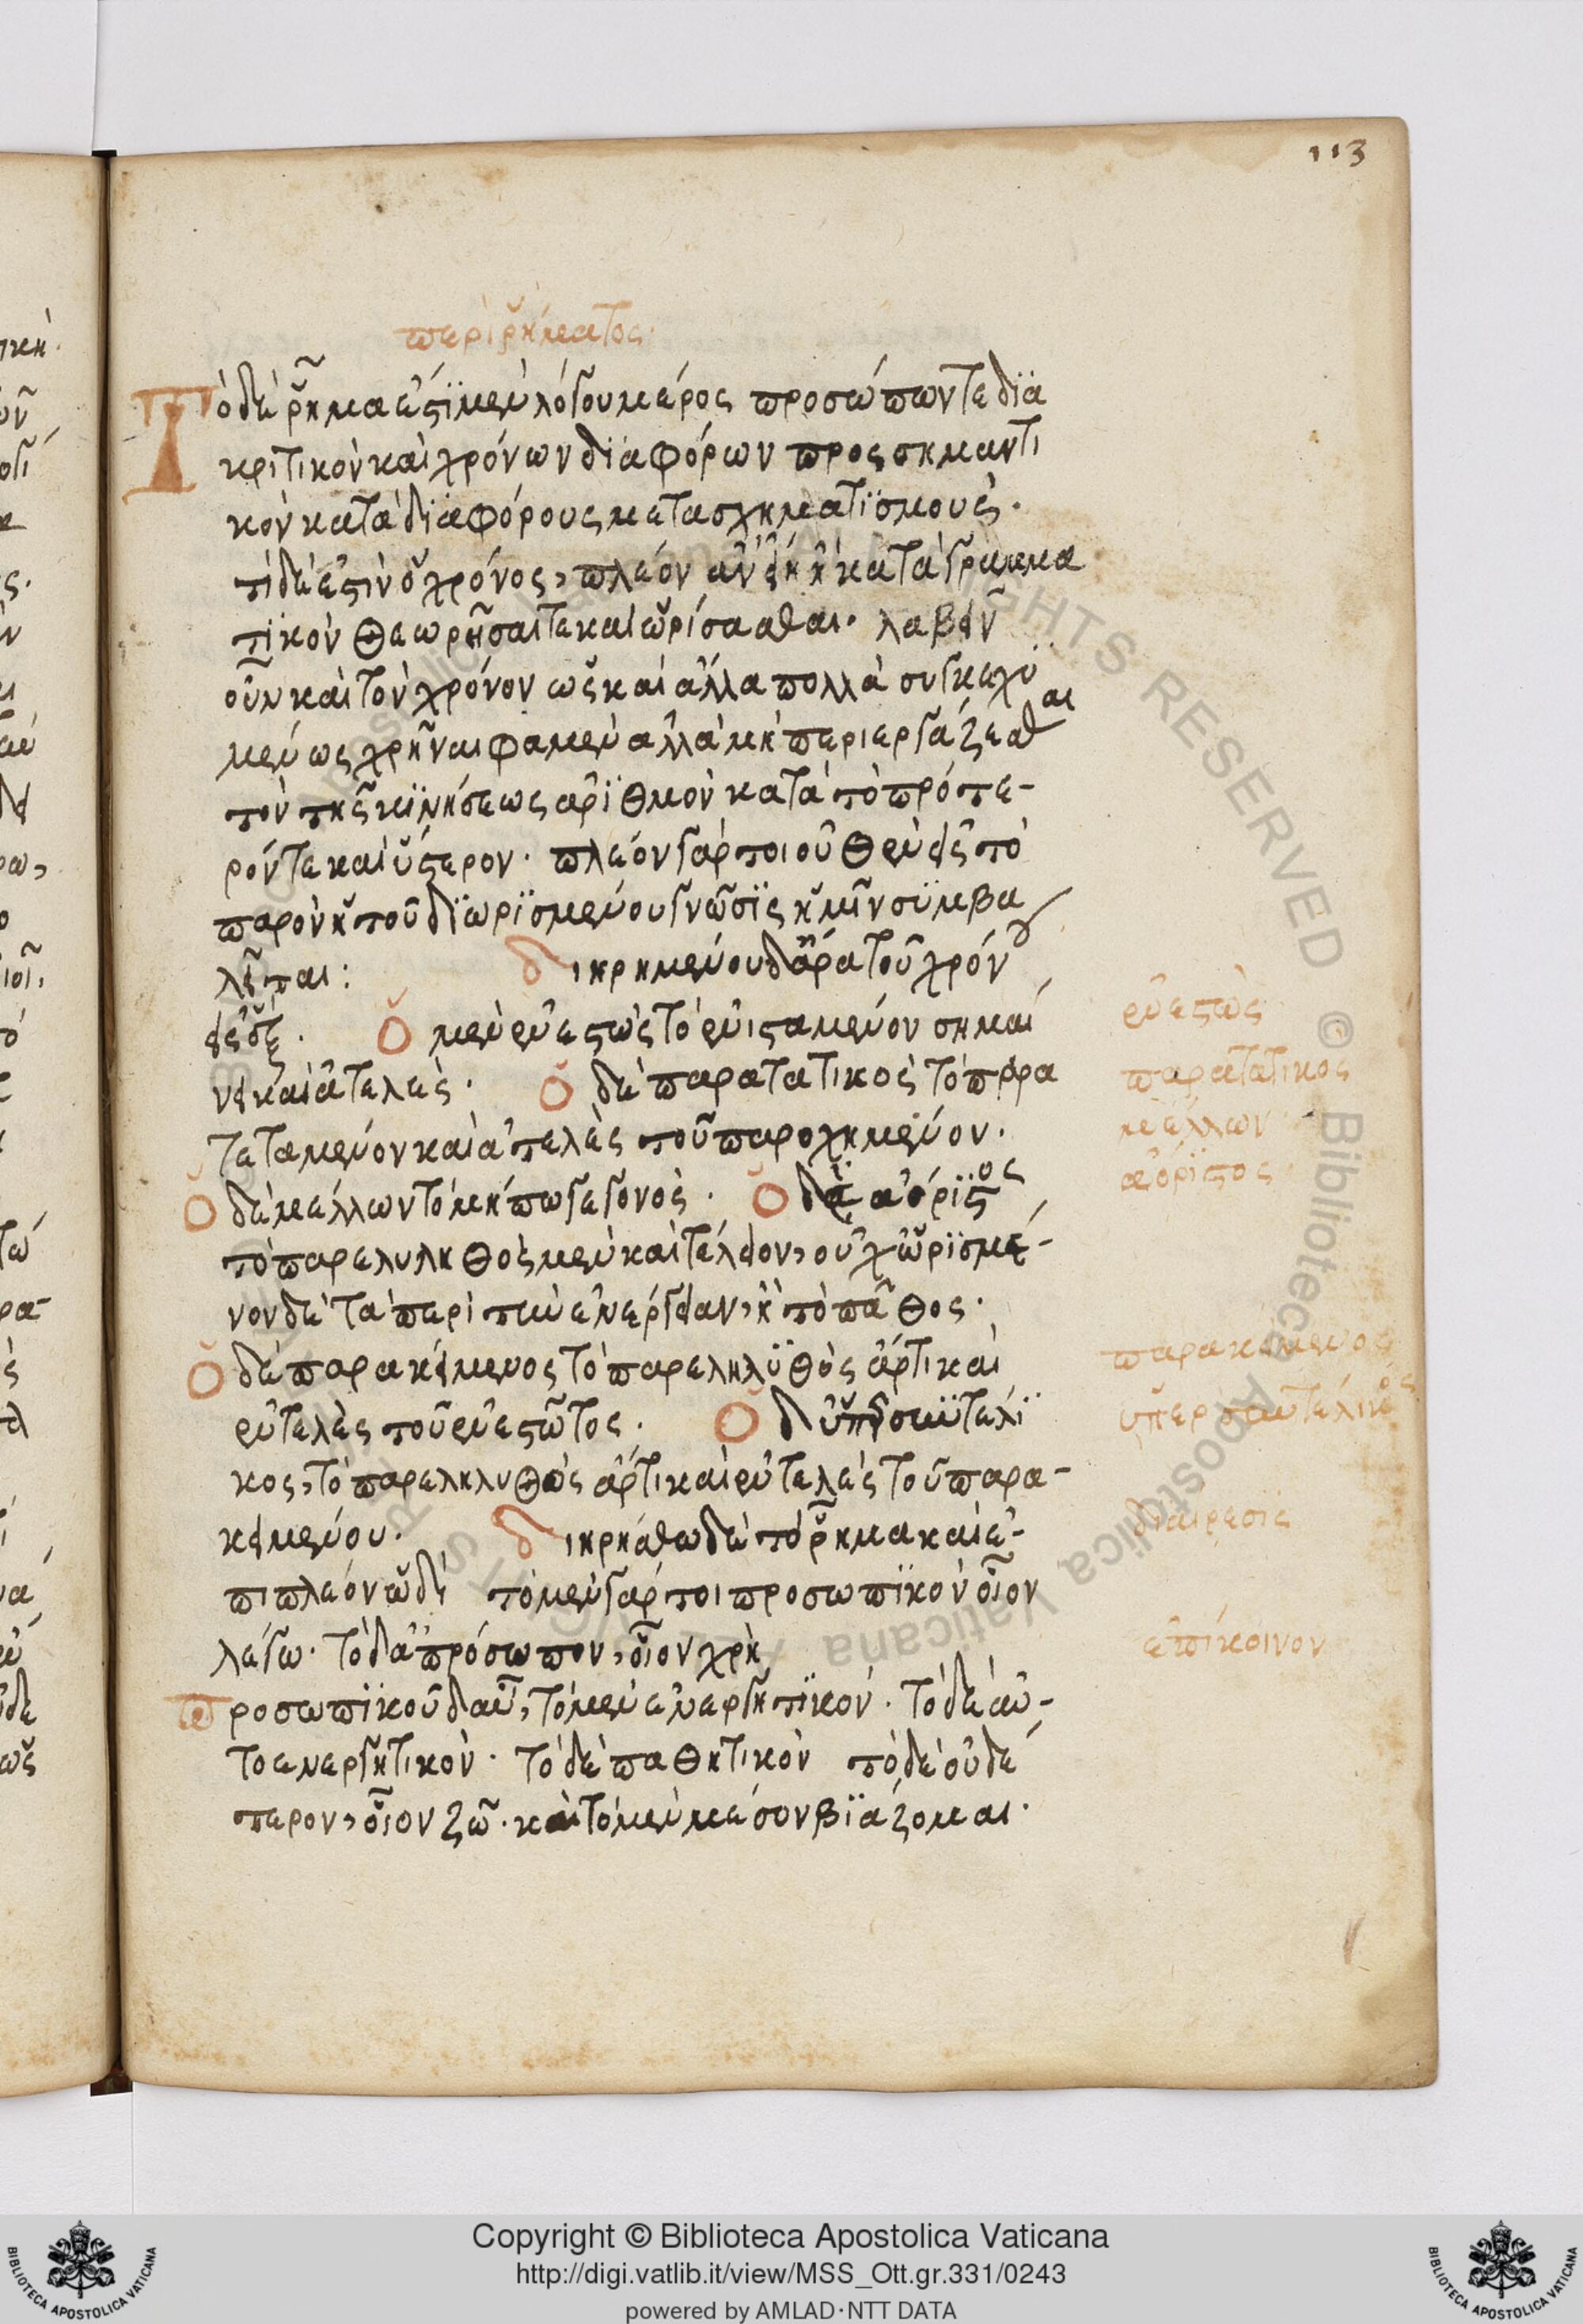 113
περὶ ῥήματος·
Τὸ δὲ ῥῆμα ἐστὶ μὲν λόγου μέρος προσώπων τε δϊα
κριτικὸν καὶ χρόνων δϊαφόρων προσσημαντι
κὸν κατὰ δϊαφόρους μετασχηματϊσμούς·
τί δέ ἐστιν ὁ χρόνος, πλέον ἂν εἴη ἢ κατὰ γραμμα
τϊκὸν θεωρῆσαί τε καὶ ὡρίσασθαι· λαβεῖν
οὖν καὶ τὸν χρόνον ὡς καὶ ἄλλα πολλὰ συγκεχϋ
μένως χρῆναι φαμὲν ἀλλὰ μὴ περιεργάζεσθαι
τὸν τῆς κϊνήσεως ἀρϊθμὸν κατὰ τὸ πρότε-
ρόν τε καὶ ὕστερον· πλέον γάρ τοι οὐθὲν εἰς τὸ
παρὸν ἡ τοῦ δϊωρϊσμένου γνῶσϊς ἡμῖν σϋμβα
λεῖται: διηρημένου δ' ἄρα τοῦ χρόνου
εἰς ἕξ· ὁ μὲν ἐνεστὼς τὸ ἐνιστάμενον σημαί
νει καὶ ἀτελές· ὁ δὲ παρατατικὸς τὸ παρα
τεταμένον καὶ ἀτελὲς τοῦ παροχημένον·
ὁ δὲ μέλλων τὸ μήπω γεγονός· ὁ δὲ ἀόρϊστος
τὸ παρελυληθὸς μὲν καὶ τέλειον, οὐχ ὡρϊσμέ-
νον δὲ τὰ περὶ τὴν ἐνέργειαν, ἢ τὸ πάθος·
ὁ δὲ παρακείμενος τὸ παρεληλϋθὸς ἄρτι καὶ
ἐντελὲς τοῦ ἐνεστῶτος· ὁ δ' ὑπερσυντελϊ
κος, τὸ παρεληλυθὼς ἄρτι καὶ ἐντελὲς τοῦ παρα-
κειμένου· διηρήσθω δὲ τὸ ῥῆμα καὶ ἐ-
πιπλέον ὧδε τὸ μὲν γάρ τοι προσωπϊκὸν οἷον
λέγω· τὸ δ' ἀπρόσωπον, οἷον χρὴ
προσωπϊκοῦ δ' αὖ, τὸ μὲν ἐνεργητϊκόν· τὸ δὲ αὐ-
τοενεργητικὸν· τὸ δὲ παθητικὸν τὸ δὲ οὐδέ
τερον, οἷον ζῶ· καὶ τὸ μὲν μέσον βϊάζομαι·
ἐνεστὼς
παρατατικος
μέλλων
ἀόρϊστος
παρακείμενος
ὑπερσυντελικὸς
διαίρεσις
ἐπίκοινον
Copyright © Biblioteca Apostolica Vaticana
http://digi.vatlib.it/view/MSS_Ott.gr.331/0243
powered by AMLAD·NTT DATA